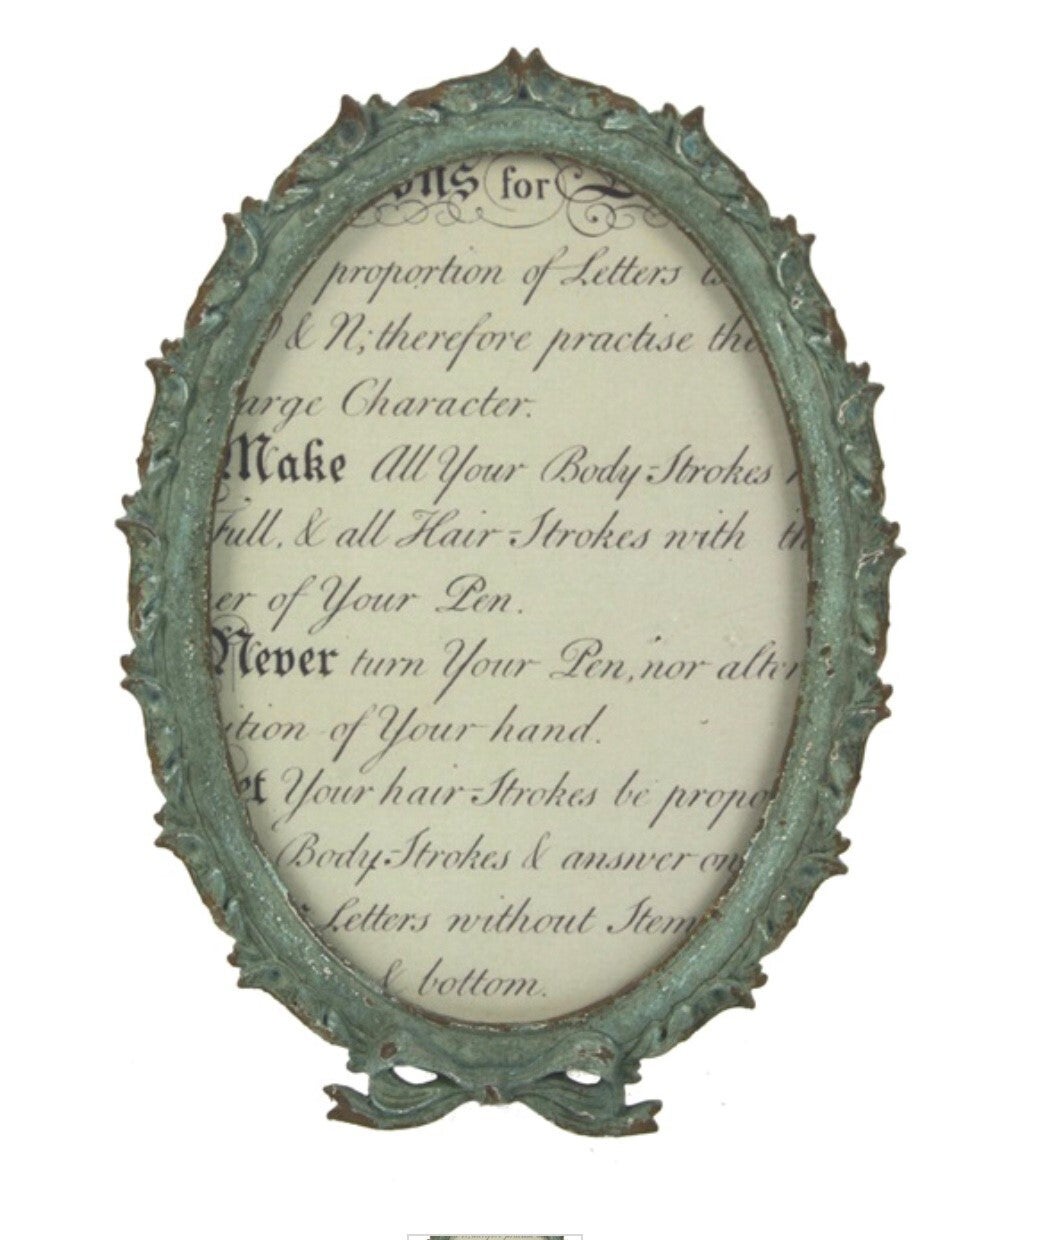 ons for
proportion of Letters is
& N; therefore practise the
arge Character.
Make All Your Body-Strokes
Full, & all Hair-Strokes with th
er of Your Pen.
Never turn Your Pen, nor alter
ition of Your hand.
et Your hair-Strokes be propo
Body-Strokes & answer on
Letters without Stem
& bottom.